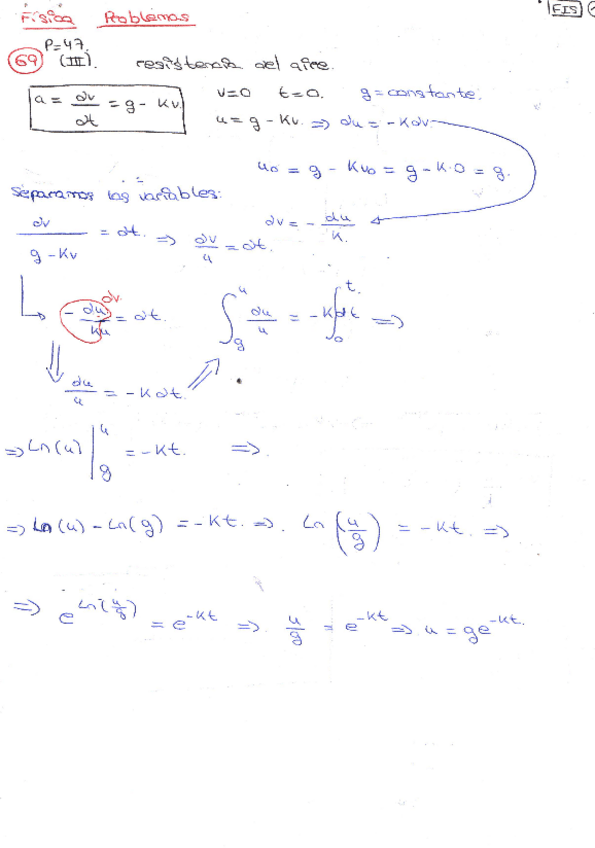 Física Problemas
FIS
P=47.
69 (III). resistencia del aire.
a = dv/dt = g - Kv. v=0 t=0. g=constante.
u = g - Kv. ⇒ du = -Kdv
u₀ = g - Kv₀ = g - K·0 = g.
Separamos las variables:
dv/(g-Kv) = dt. ⇒ dv/u = dt. dv = - du/K.
- du/Ku = dt. dv ∫_g^u du/u = -K∫_0^t dt ⇒
du/u = -Kdt.
⇒ Ln(u) |_g^u = -Kt. ⇒
⇒ Ln(u) - Ln(g) = -Kt. ⇒. Ln (u/g) = -Kt. ⇒
⇒ e^Ln(u/g) = e^-Kt ⇒ u/g = e^-Kt ⇒ u = ge^-Kt.